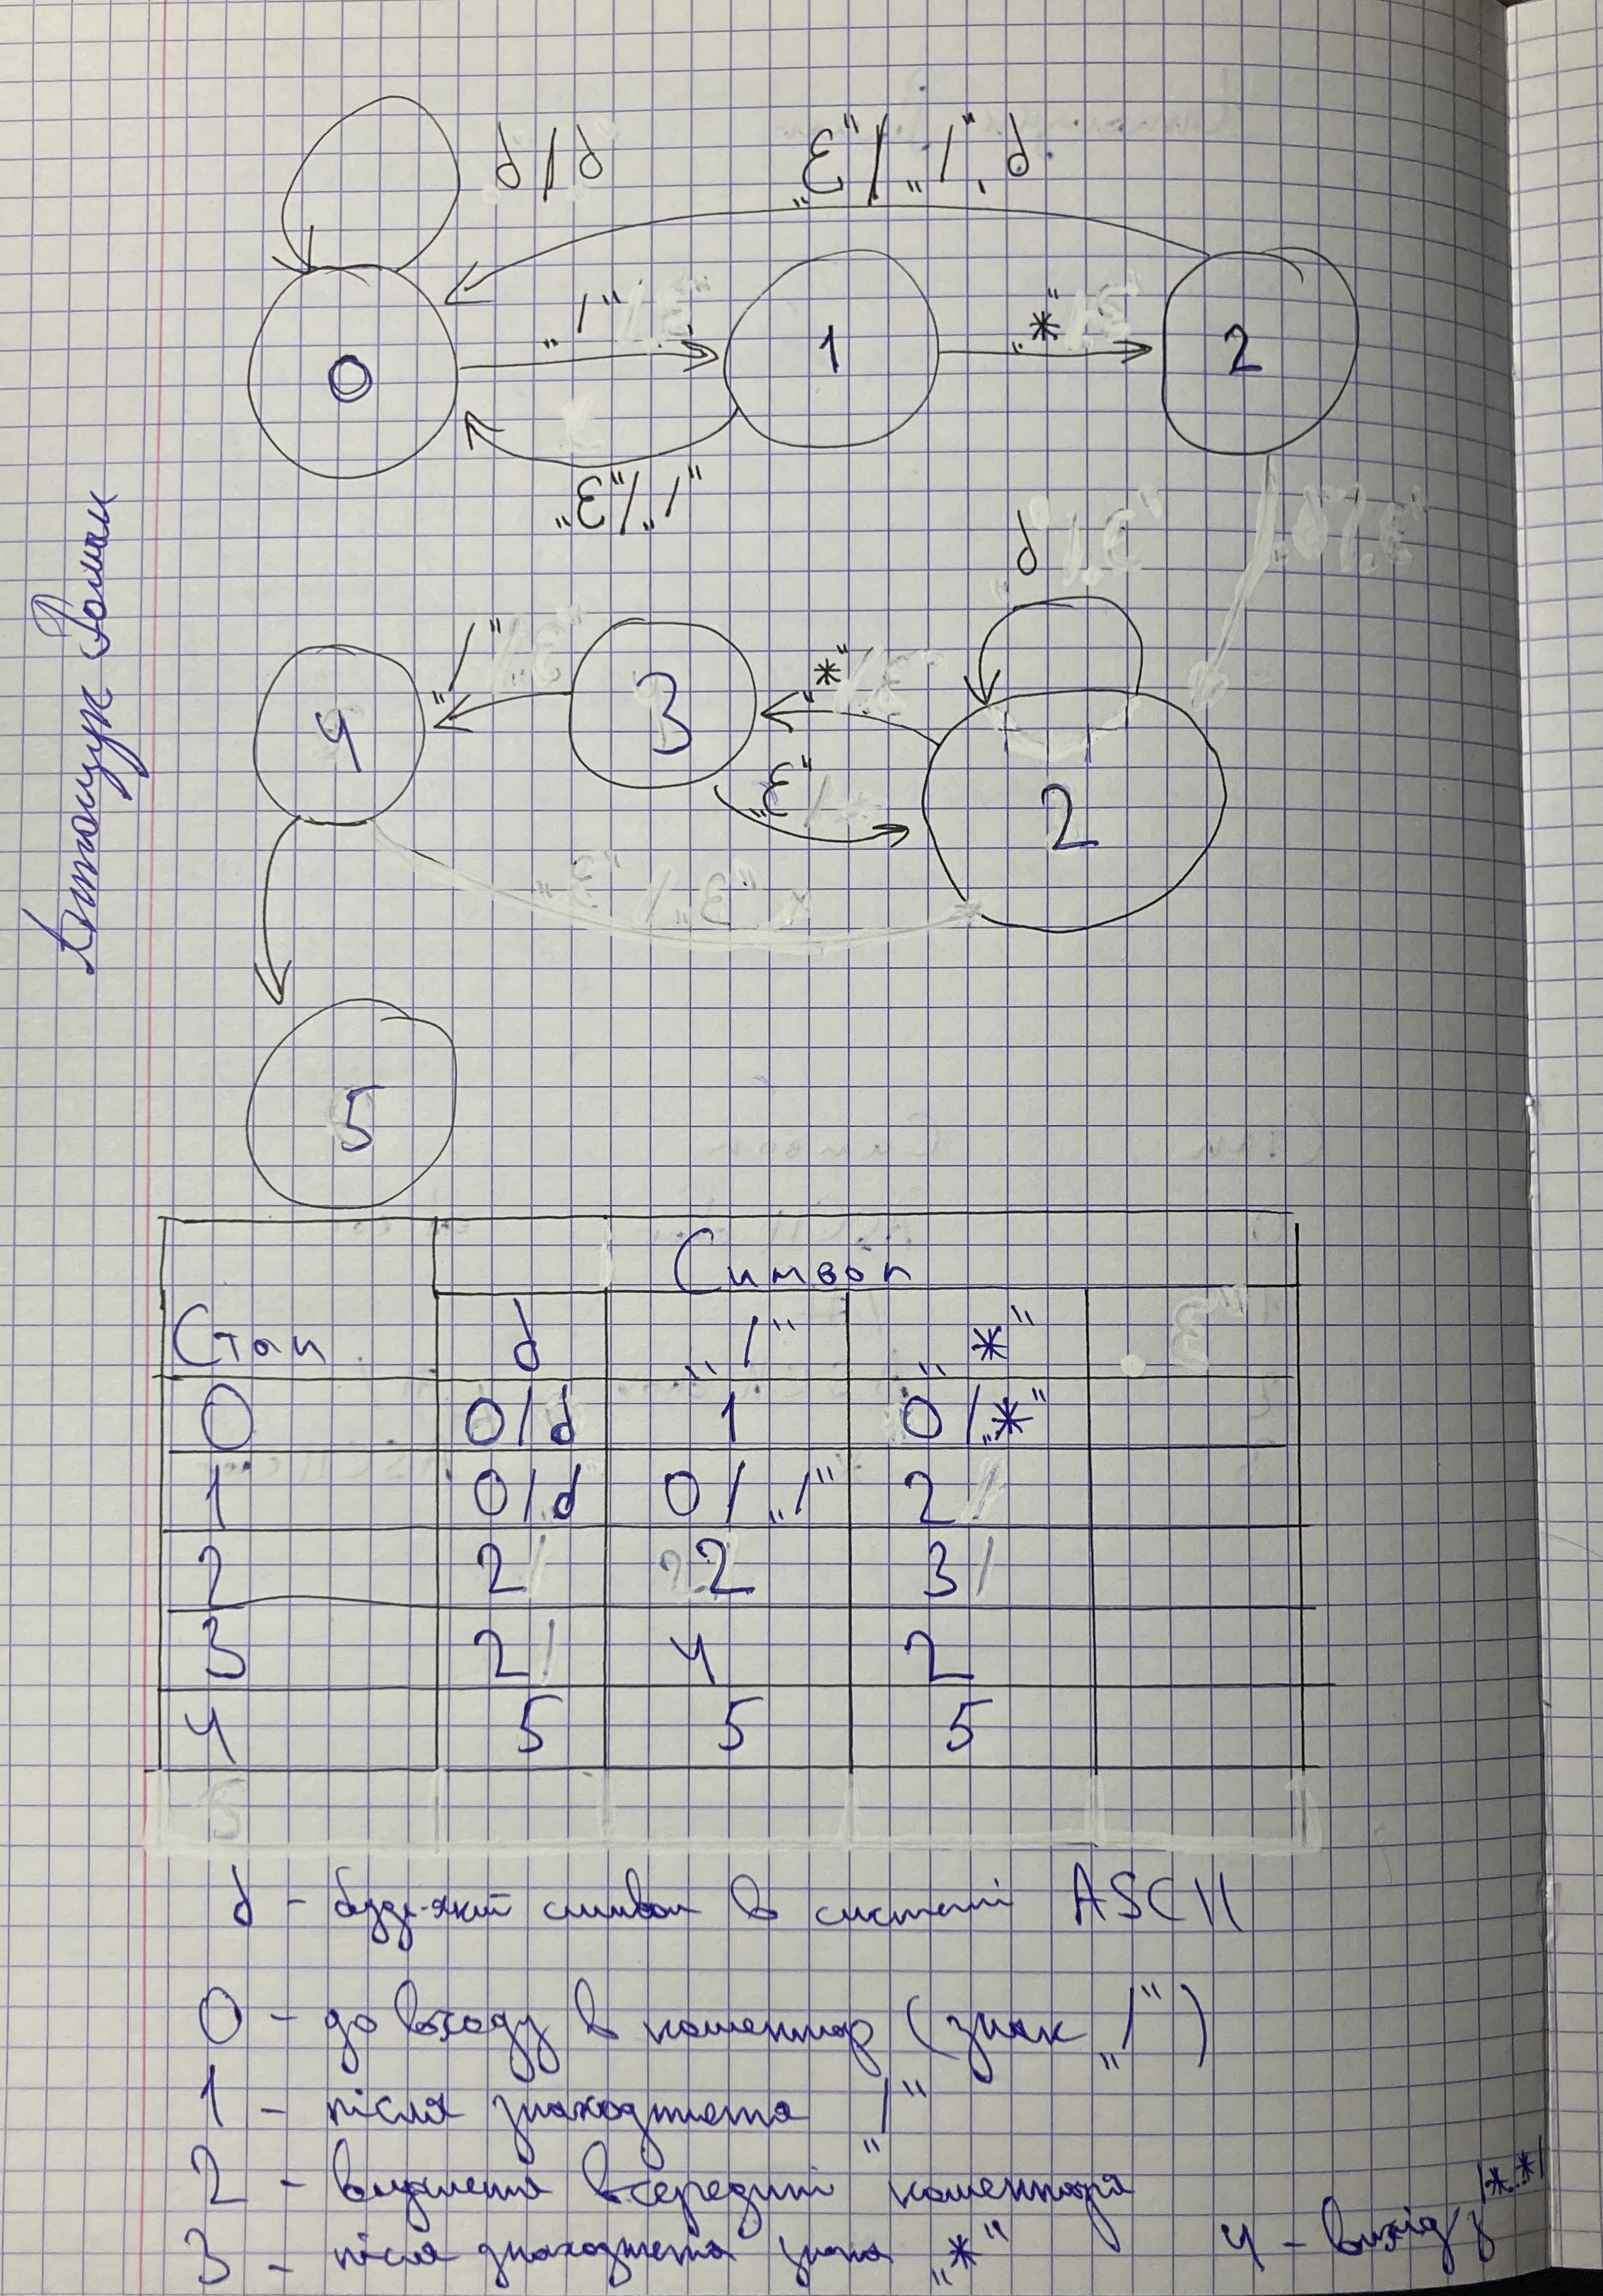 d/d
"ε"/"/", d
"/"
"*"
0
1
2
"ε"/"/"
d
"/"
"*"
4
3
2
"ε"
5
Антощук Роман
Символ
Стан d "/" "*"
0 0/d 1 0/"*"
1 0/d 0/"/" 2
2 2 2 3
3 2 4 2
4 5 5 5
d - будь-який символ в системі ASCII
0 - до входу в коментар (знак "/")
1 - після знаходження "/"
2 - всередині коментаря
3 - після знаходження знака "*"
4 - вихід з /**/